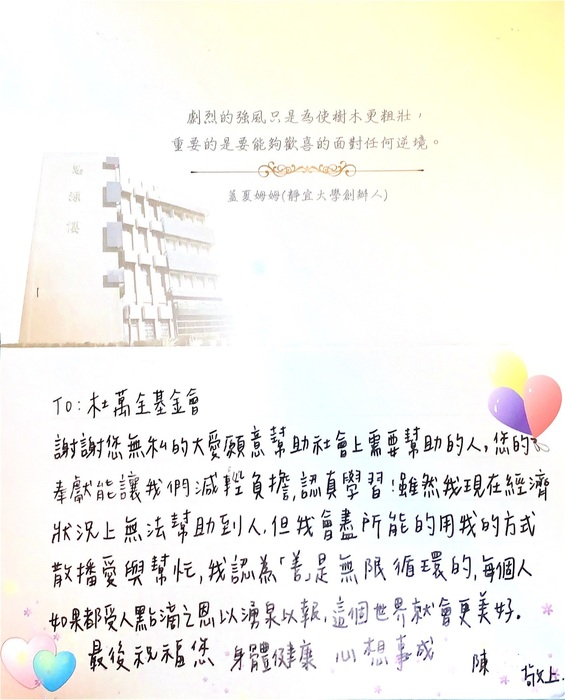 劇烈的強風只是為使樹木更粗壯，
重要的是要能夠歡喜的面對任何逆境。
蓋夏姆姆(靜宜大學創辦人)
TO: 杜萬全基金會
謝謝您無私的大愛願意幫助社會上需要幫助的人，您的
奉獻能讓我們減輕負擔，認真學習！雖然我現在經濟
狀況上無法幫助到人，但我會盡所能的用我的方式
散播愛與幫忙，我認為「善」是無限循環的，每個人
如果都受人點滴之恩以湧泉以報，這個世界就會更美好。
最後祝福您 身體健康 心想事成 陳 敬上.